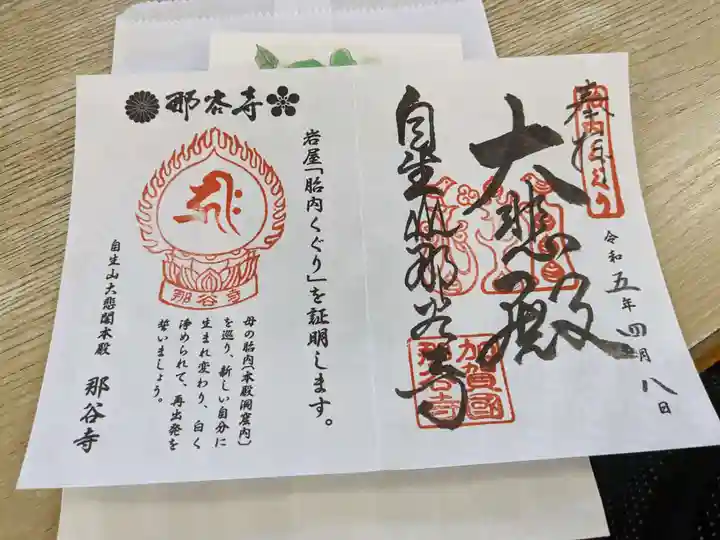 奉拝
胎内くぐり
大悲殿
自生山那谷寺
加賀國
那谷寺
令和五年四月八日
那谷寺
岩屋「胎内くぐり」を証明します。
那谷寺
母の胎内（本殿洞窟内）
を巡り、新しい自分に
生まれ変わり、白く
浄められて、再出発を
誓いましょう。
自生山大悲閣本殿 那谷寺